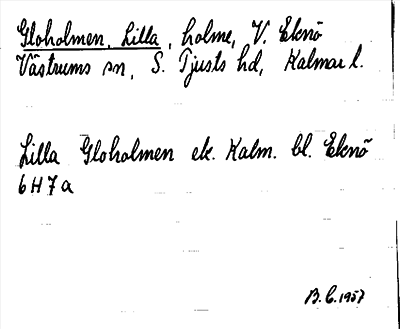 Gloholmen, Lilla, holme, V. Eknö
Västrums sn, S. Tjusts hd, Kalmar l.
Lilla Gloholmen ek. Kalm. bl. Eknö
6H7a
B.C. 1957